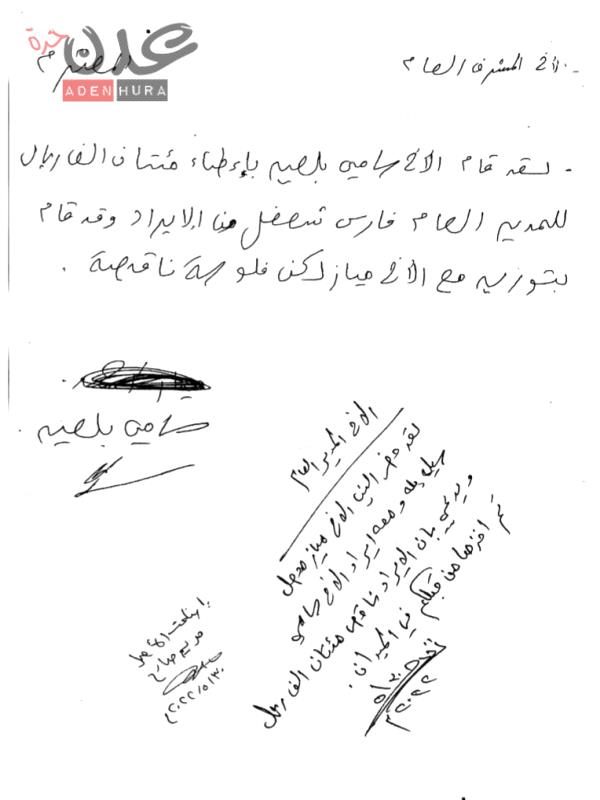 عدن حرة
ADEN HURA
الأخ المشرف العام المحترم
لقد قام الأخ سامي بلعيد بإعطاء مئتان الف ريال
للمدير العام فارس شعفل من الإيراد وقد قام
بتوزيه مع الأخ مياز لكن فلوسة ناقصة .
سامي بلعيد
الأخ المدير العام
لقد حضر الينا الأخ مياز
ومعه ايراد الأخ سامي
ويدعي بان الايراد ناقص مئتان الف ريال
تم اخذها من قبلكم في الميدان .